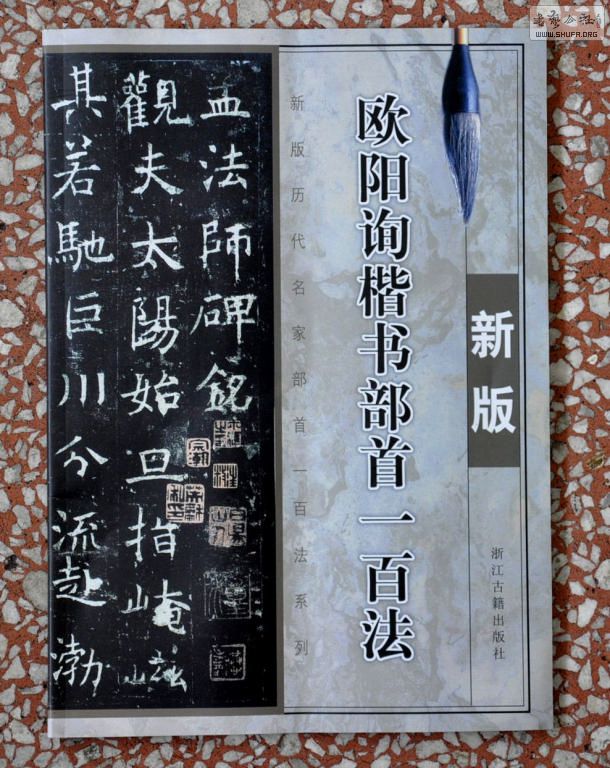 欧阳询楷书部首一百法
新版
浙江古籍出版社
新版历代名家部首一百法系列
孟法師碑銘
觀夫太陽始旦指崦嵫
其若馳巨川分流赴渤
WWW.SHUFA.ORG